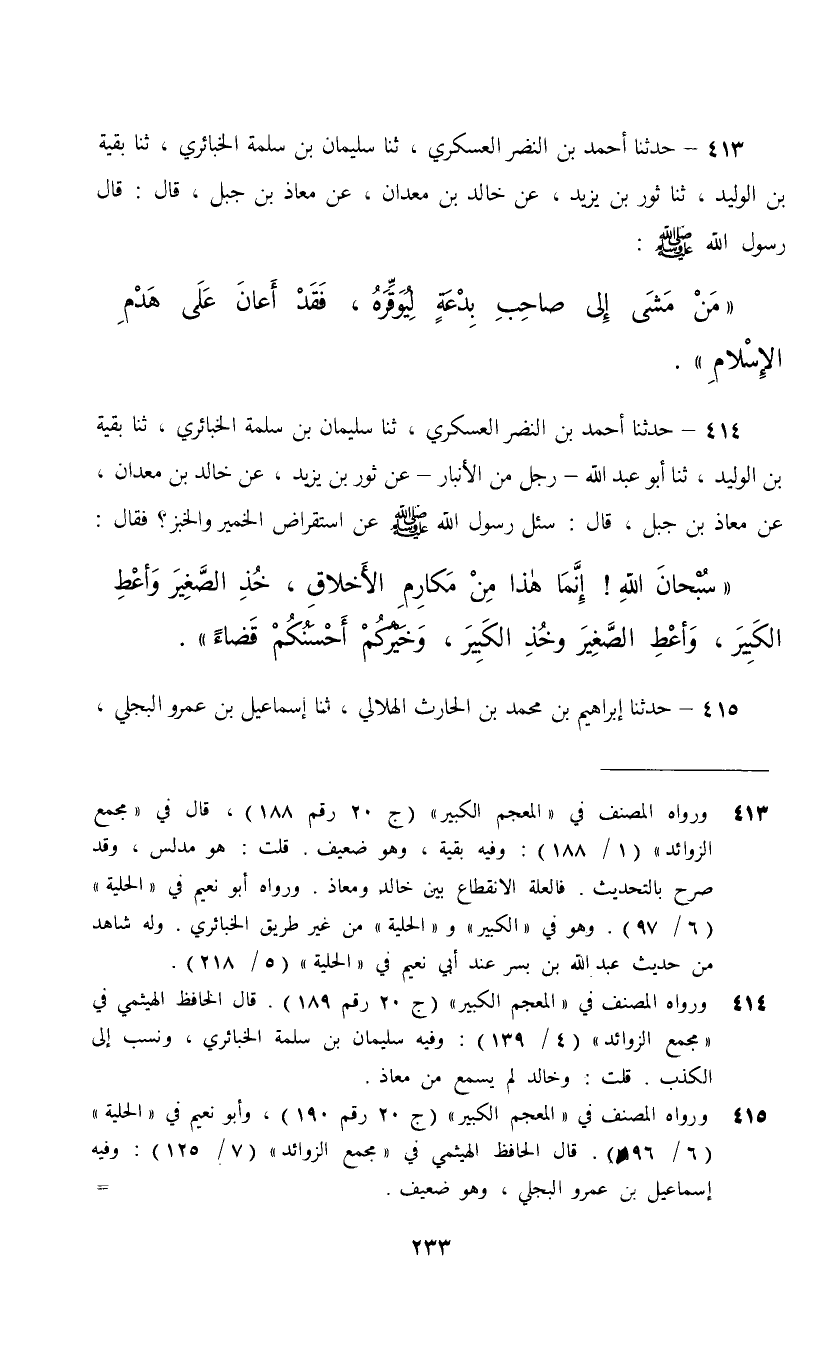 ٤١٣ – حدثنا أحمد بن النضر العسكري ، ثنا سليمان بن سلمة الخبائري ، ثنا بقية
بن الوليد ، ثنا ثور بن يزيد ، عن خالد بن معدان ، عن معاذ بن جبل ، قال : قال
رسول الله ﷺ :
« مَنْ مَشَى إِلى صاحِبِ بِدْعَةٍ لِيُوَقِّرَهُ ، فَقَدْ أَعانَ عَلَى هَدْمِ
الإِسْلامِ » .
٤١٤ – حدثنا أحمد بن النضر العسكري ، ثنا سليمان بن سلمة الخبائري ، ثنا بقية
بن الوليد ، ثنا أبو عبد الله – رجل من الأنبار – عن ثور بن يزيد ، عن خالد بن معدان ،
عن معاذ بن جبل ، قال : سئل رسول الله ﷺ عن استقراض الخمير والخبز؟ فقال :
« سُبْحانَ اللهِ ! إِنَّمَا هٰذا مِنْ مَكارِمِ الأَخلاقِ ، خُذِ الصَّغِيَرَ وَأعْطِ
الكَبِيَر ، وَأعْطِ الصَّغِيَر وخُذِ الكَبِيَر ، وَخَيْرُكُمْ أَحْسَنُكُمْ قَضاءً » .
٤١٥ – حدثنا إبراهيم بن محمد بن الحارث الهلالي ، ثنا إسماعيل بن عمرو البجلي ،
٤١٣ ورواه المصنف في « المعجم الكبير » (ج ٢٠ رقم ١٨٨) ، قال في « مجمع
الزوائد » (١ / ١٨٨) : وفيه بقية ، وهو ضعيف . قلت : هو مدلس ، وقد
صرح بالتحديث . فالعلة الانقطاع بين خالد ومعاذ . ورواه أبو نعيم في « الحلية »
(٦ / ٩٧) . وهو في « الكبير » و « الحلية » من غير طريق الخبائري . وله شاهد
من حديث عبد الله بن بسر عند أبي نعيم في « الحلية » (٥ / ٢١٨) .
٤١٤ ورواه المصنف في « المعجم الكبير » (ج ٢٠ رقم ١٨٩) . قال الحافظ الهيثمي في
« مجمع الزوائد » (٤ / ١٣٩) : وفيه سليمان بن سلمة الخبائري ، ونسب إلى
الكذب . قلت : وخالد لم يسمع من معاذ .
٤١٥ ورواه المصنف في « المعجم الكبير » (ج ٢٠ رقم ١٩٠) ، وأبو نعيم في « الحلية »
(٦ / ٩٦) . قال الحافظ الهيثمي في « مجمع الزوائد » (٧ / ١٢٥) : وفيه
إسماعيل بن عمرو البجلي ، وهو ضعيف . =
٢٣٣